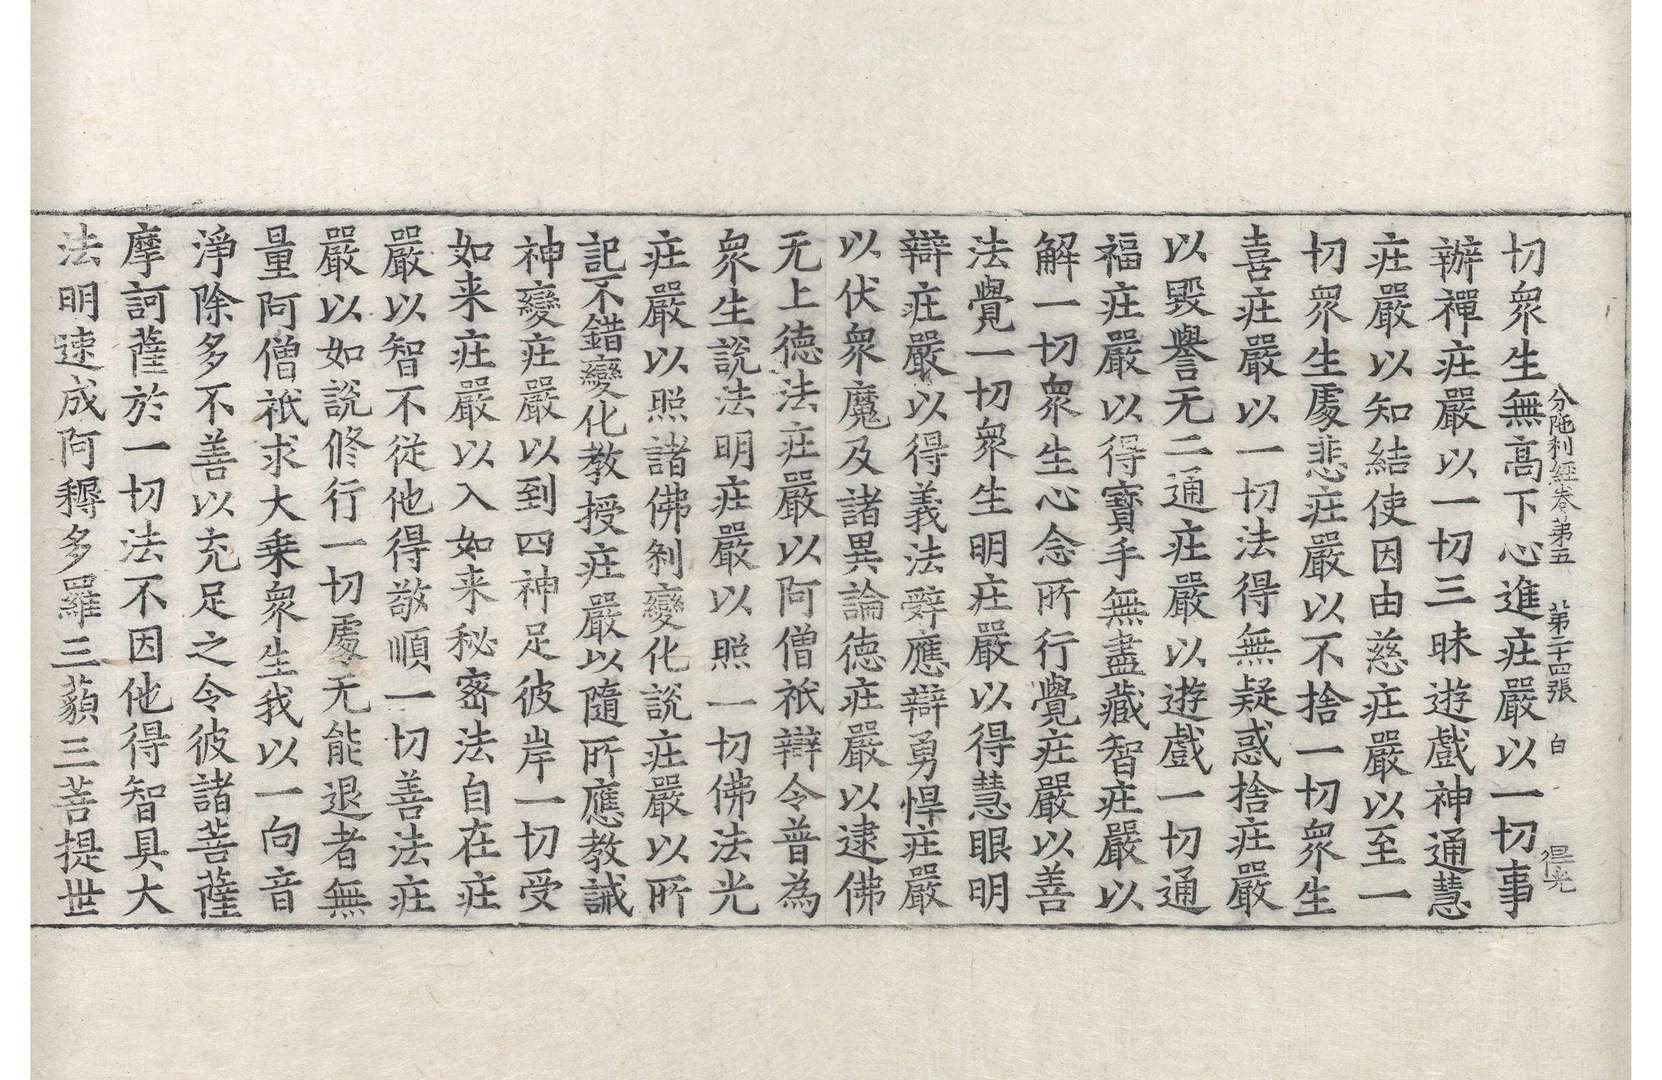 切衆生無高下心進庄嚴以一切事
分陁利經卷第五　第二十四張　白
辦禪庄嚴以一切三昧遊戲神通慧
庄嚴以知結使因由慈庄嚴以至一
切衆生處悲庄嚴以不捨一切衆生
喜庄嚴以一切法得無疑惑捨庄嚴
以毀譽无二通庄嚴以遊戲一切通
福庄嚴以得寶手無盡藏智庄嚴以
解一切衆生心念所行覺庄嚴以善
法覺一切衆生明庄嚴以得慧眼明
辯庄嚴以得義法辭應辯勇悍庄嚴
以伏衆魔及諸異論德庄嚴以逮佛
无上德法庄嚴以阿僧祇辯令普為
衆生說法明庄嚴以照一切佛法光
庄嚴以照諸佛剎變化說庄嚴以所
記不錯變化教授庄嚴以隨所應教誡
神變庄嚴以到四神足彼岸一切受
如来庄嚴以入如来秘密法自在庄
嚴以智不從他得敬順一切善法庄
嚴以如說修行一切處无能退者無
量阿僧祇求大乗衆生我以一向音
淨除多不善以充足之令彼諸菩薩
摩訶薩於一切法不因他得智具大
法明速成阿耨多羅三藐三菩提世